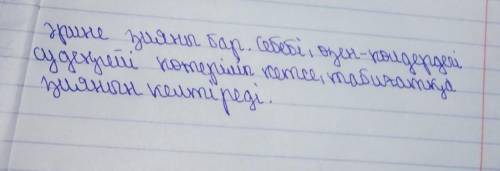 әрине зияны бар. Себебі, өзен-көлдердегі
су деңгейі көтеріліп кетсе, табиғатқа
зиянын келтіреді.